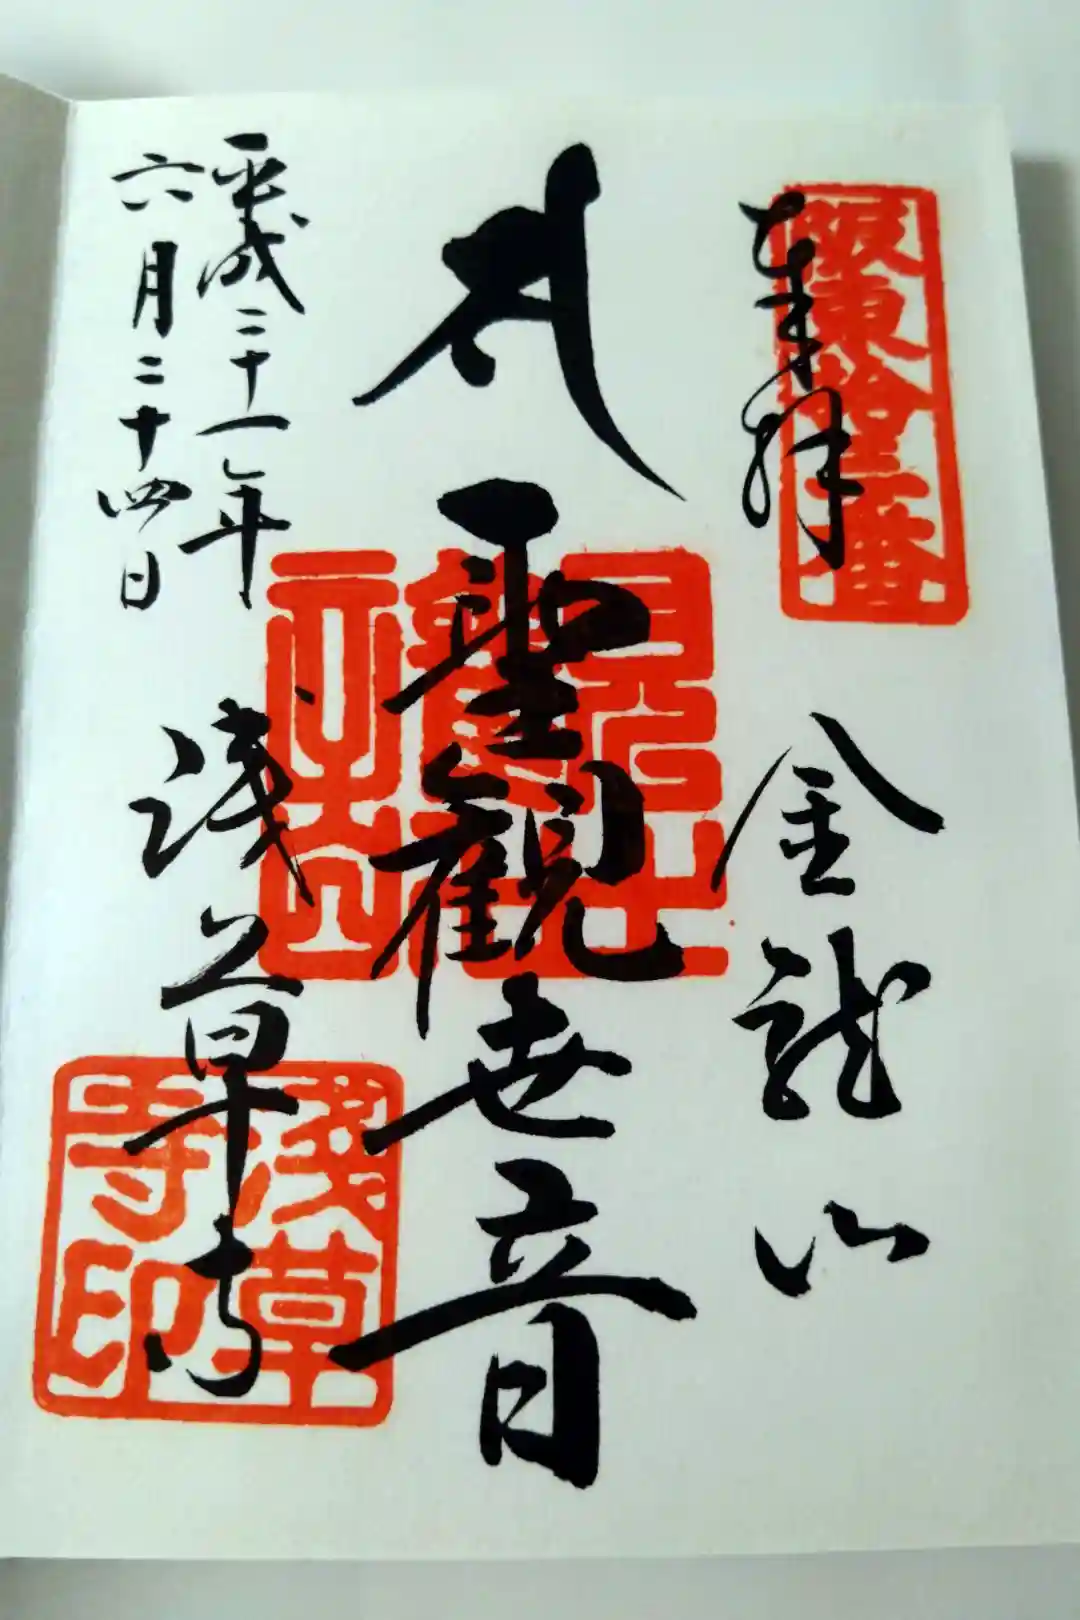 奉拝
坂東拾三番
金龍山
聖観世音
平成二十一年
六月二十四日
浅草寺
浅草寺印